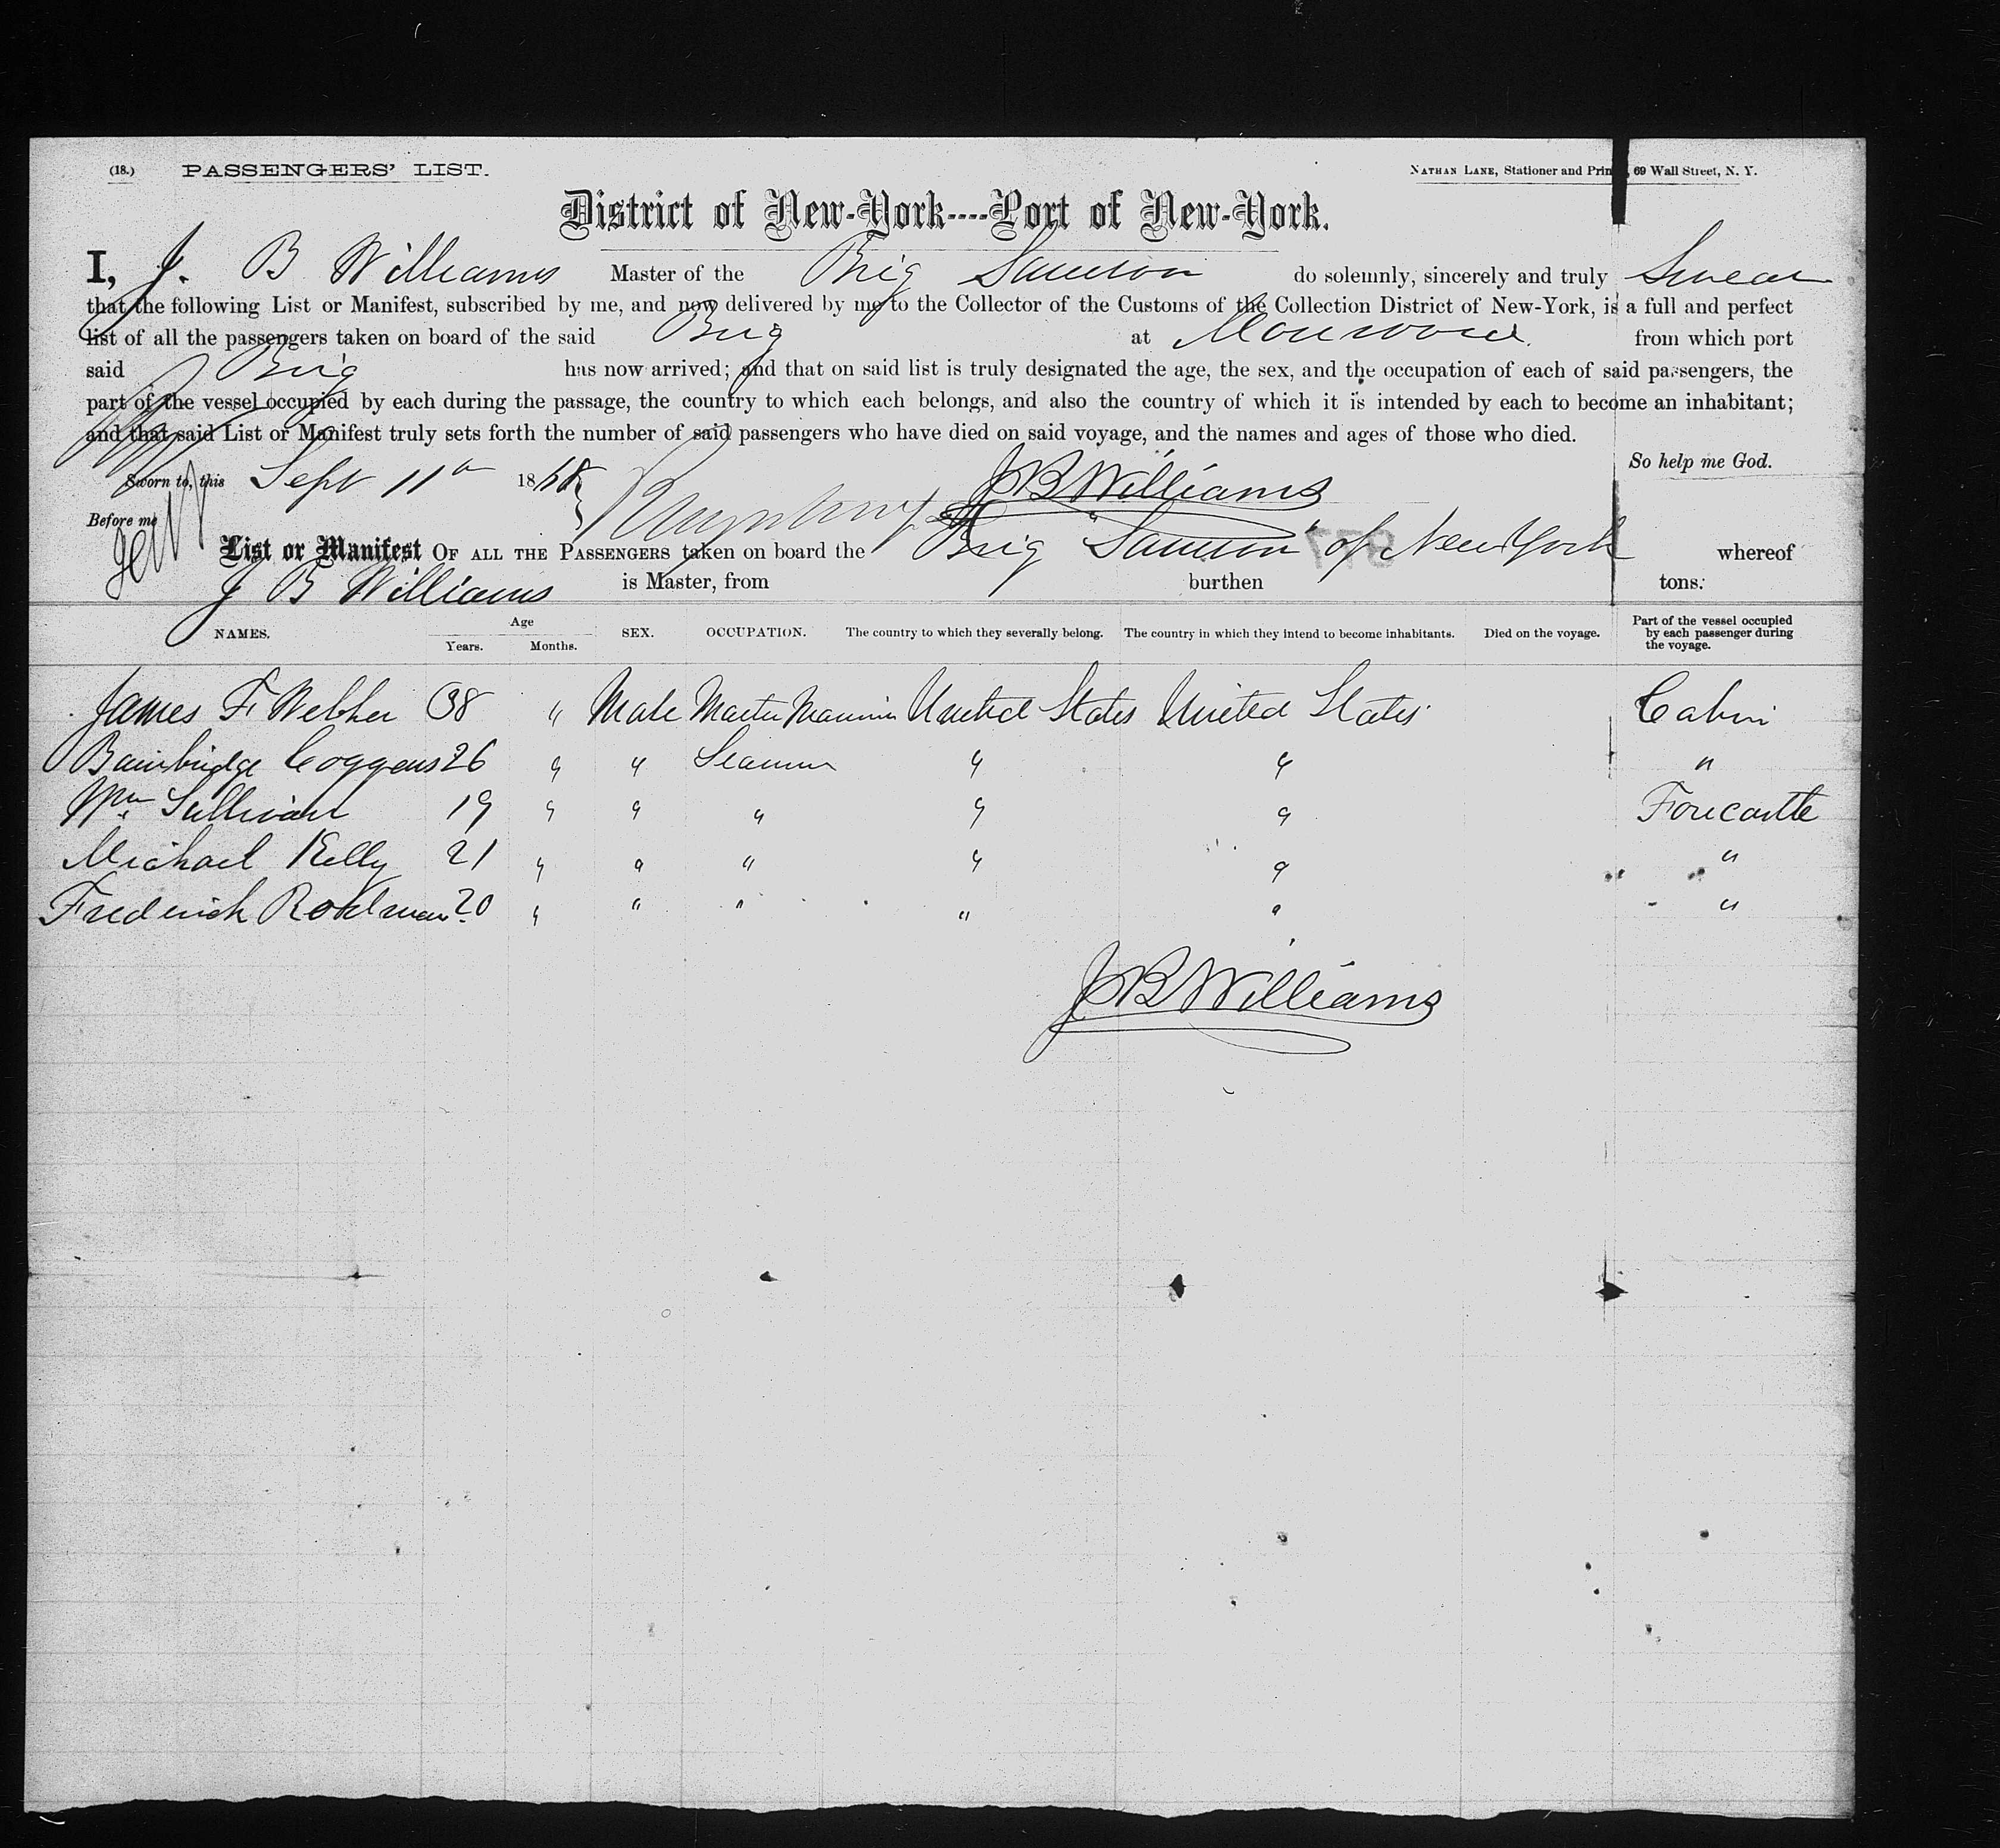 (18.) PASSENGERS' LIST.
NATHAN LANE, Stationer and Prin , 69 Wall Street, N. Y.
District of New-York----Port of New-York.
I, J. B Williams Master of the Brig Samson do solemnly, sincerely and truly Swear
that the following List or Manifest, subscribed by me, and now delivered by me to the Collector of the Customs of the Collection District of New-York, is a full and perfect
list of all the passengers taken on board of the said Brig at from which port
said Brig has now arrived; and that on said list is truly designated the age, the sex, and the occupation of each of said passengers, the
part of the vessel occupied by each during the passage, the country to which each belongs, and also the country of which it is intended by each to become an inhabitant;
and that said List or Manifest truly sets forth the number of said passengers who have died on said voyage, and the names and ages of those who died.
So help me God.
Sworn to, this Sept 11th 1868 JB Williams
Before me
List or Manifest OF ALL THE PASSENGERS taken on board the Brig "Samson" of New York whereof
J B Williams is Master, from burthen tons.
NAMES. Age Years. Months. SEX. OCCUPATION. The country to which they severally belong. The country in which they intend to become inhabitants. Died on the voyage. Part of the vessel occupied by each passenger during the voyage.
James F Webher 38 " Male Master Mariner United States United States Cabin
Bainbridge Coggens 26 " " Seaman " " "
Wm Sullivan 19 " " " " " Forecastle
Michael Kelly 21 " " " " " "
Frederick Rodman 20 " " " " " "
JB Williams